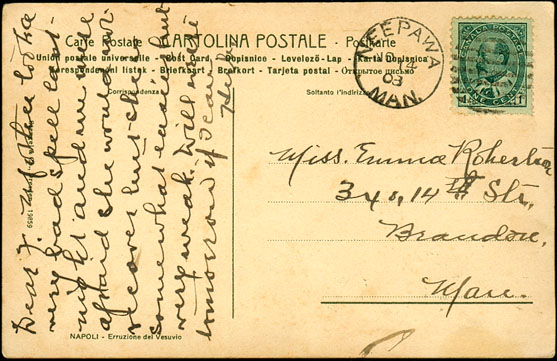 Carte Postale CARTOLINA POSTALE - Postkarte
Union postale universelle - Post Card - Dopisnice - Levelező-Lap - Karta Dopisnica
Correspondenzkarte listek - Briefkaart - Brefkort - Tarjeta postal - Открытое письмо
Corrispondenza
Soltanto l'indirizzo
NEEPAWA
14
03
MAN.
CANADA POSTAGE
ONE CENT
1
Dear J. Mother took a
very bad spell last
night and was
afraid she would not
recover but is
somewhat easier but
very weak. Will write
tomorrow if I can
Miss. Emma Robertson
348, 14th Str,
Brandon,
Man.
19859
NAPOLI - Erruzione del Vesuvio